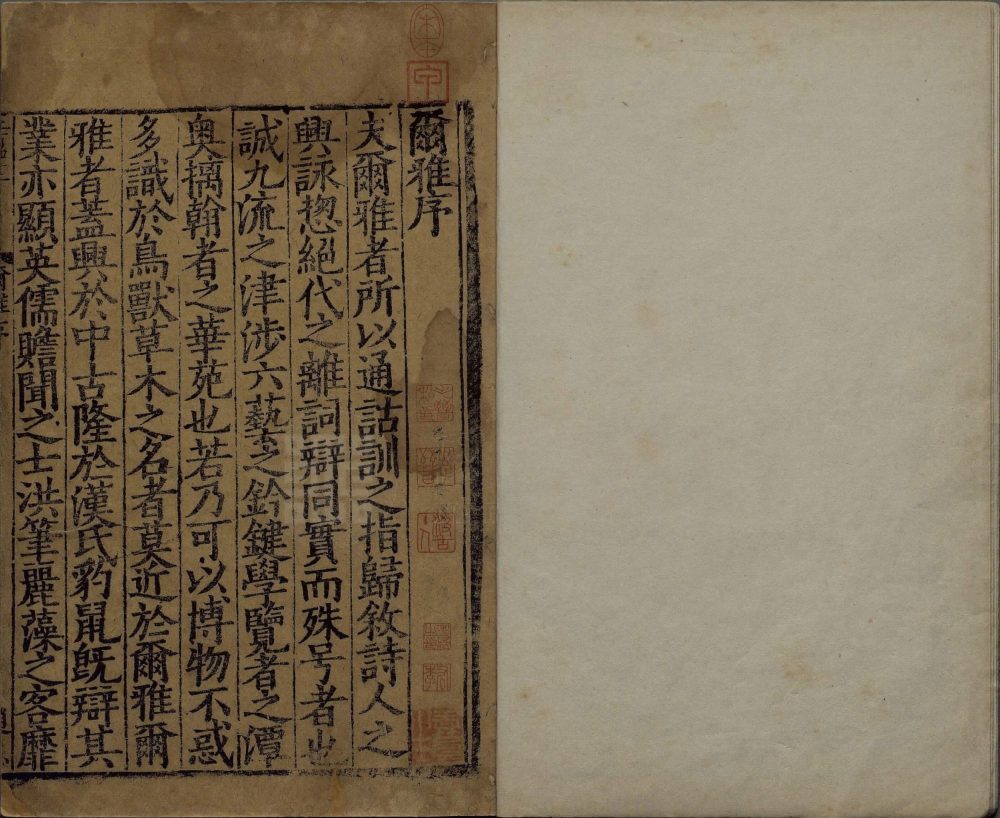 爾雅序
夫爾雅者所以通詁訓之指歸敘詩人之
興詠揔絕代之離詞辯同實而殊号者也
誠九流之津涉六藝之鈐鍵學覽者之潭
奧摛翰者之華苑也若乃可以博物不惑
多識於鳥獸草木之名者莫近於爾雅爾
雅者蓋興於中古隆於漢氏豹鼠旣辯其
業亦顯英儒贍聞之士洪筆麗藻之客靡
爾雅序